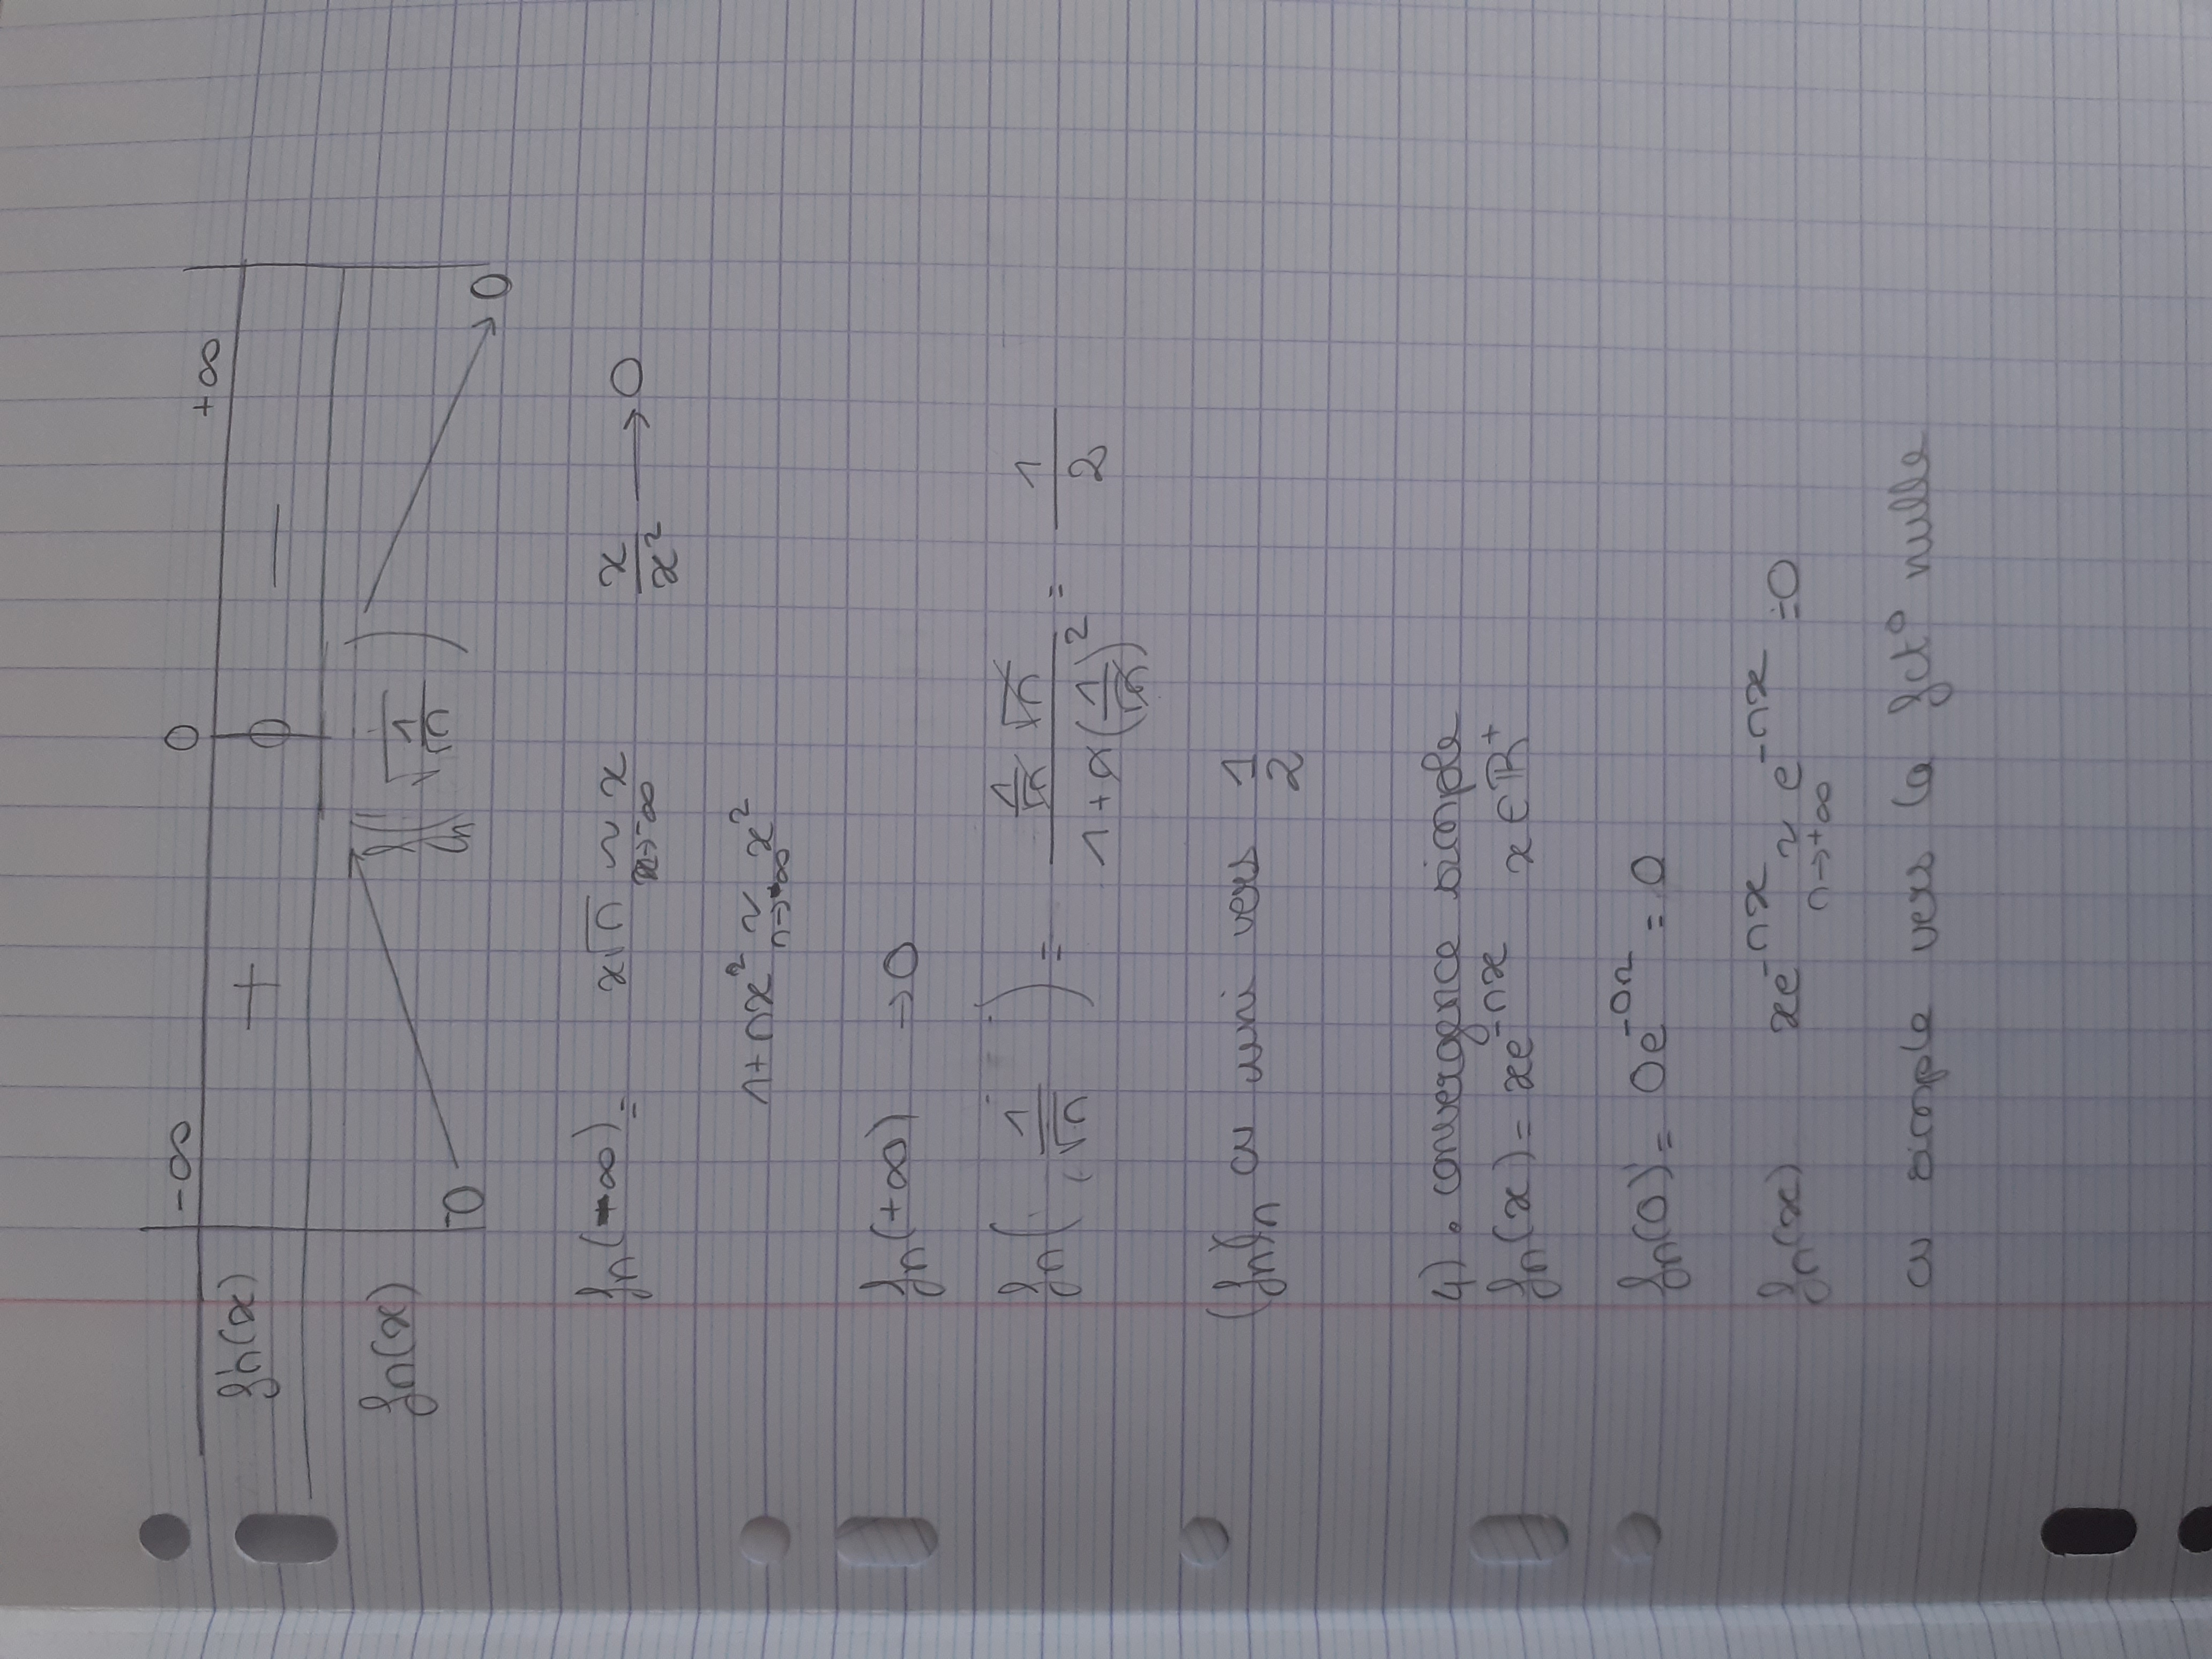 -∞ 0 +∞
fn'(x) + 0 -
fn(x) 0 fn(√(1/√n)) 0
fn(-∞) = x√n ~ x→-∞ x x/x² → 0
1+nx² ~ n→-∞ x²
fn(+∞) → 0
fn(1/√n) = (1/√n √n)/(1+n(1/√n)²) = 1/2
(fn)n cv uni vers 1/2
4) • convergence simple
fn(x) = xe^-nx x ∈ ℝ+
fn(0) = 0e^-0n = 0
fn(x) xe^-nx ~ n→+∞ e^-nx = 0
cv simple vers la fct° nulle